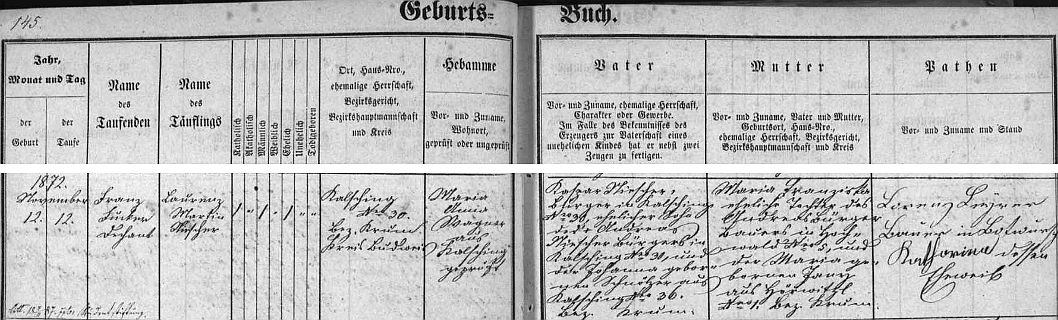 145.
Geburts=
Buch.
Jahr,
Monat und Tag
der
Geburt
der
Taufe
Name
des
Taufenden
Name
des
Täuflings
Katholisch
Akatholisch
Männlich
Weiblich
Ehelich
Unehelich
Todtgeboren
Ort, Haus-Nro.,
ehemalige Herrschaft,
Bezirksgericht,
Bezirkshauptmannschaft
und Kreis
Hebamme
Vor- und Zuname,
Wohnort,
geprüft oder ungeprüft
Vater
Vor- und Zuname, ehemalige Herrschaft,
Charakter oder Gewerbe.
Im Falle des Bekenntnisses des
Erzeugers zur Vaterschaft eines
unehelichen Kindes hat er nebst zwei
Zeugen zu fertigen.
Mutter
Vor- und Zuname, Vater und Mutter,
Geburtsort, Haus-Nro.,
ehemalige Herrschaft, Bezirksgericht,
Bezirkshauptmannschaft und Kreis
Pathen
Vor- und Zuname und Stand
1872.
November
12. 12.
Franz
Dechant
Laurenz
Martin
Kalsching
Nro 30.
Bez. Krumm
Kreis Budweis
Maria
Anna
Wagner
aus
Kalsching
geprüft
Kaspar
Bürger in Kalsching
No 30, ehelicher Sohn
des Andreas
Bürgers in
Kalsching No 30, und
der Johanna gebor-
nen
aus
Kalsching No 30.
Bez. Krum.
Maria Franziska
eheliche Tochter des
Andreas Bürger
Bauers in Hoch-
wald No 8 und
der Maria ge-
bornen
aus Höritz
No 1. Bez. Krum.
Lorenz
Bauer in
Katharina dessen
Eheweib